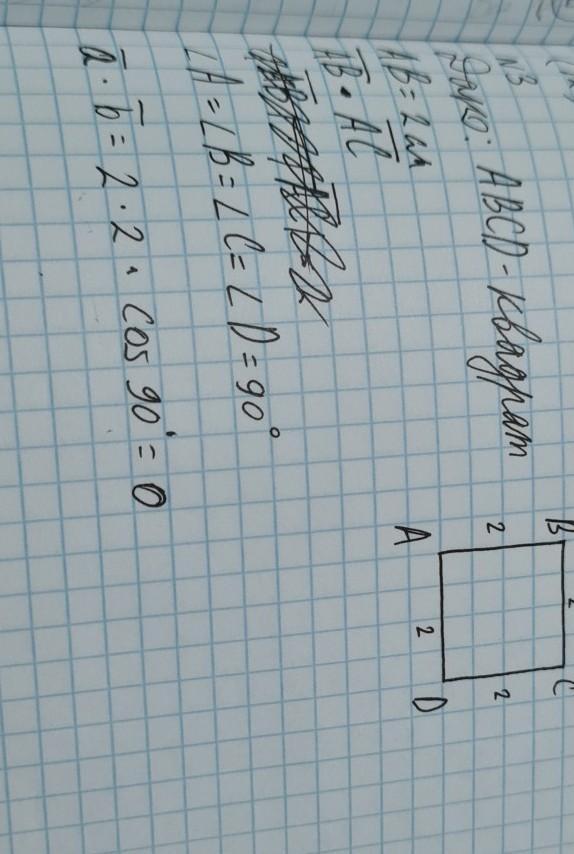 N3
Дано: ABCD - квадрат
AB = 2 см
AB · AC
∠A = ∠B = ∠C = ∠D = 90°
a · b = 2 · 2 · cos 90° = 0
B
2
2
C
A
2
2
D